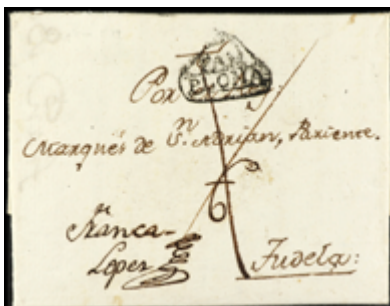 PAM
PLONA
Por
Marqués de S.n Adrian, Pariente.
Franca-
Lopez
Tudela: